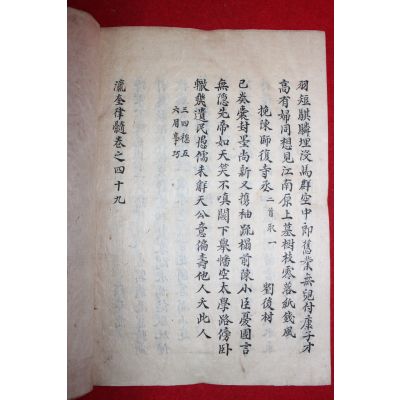 羽短麒麟埋沒馬群空中郎舊業無兒付康子才
高有婦同想見江南原上墓樹枝零落紙錢風
挽陳師復寺丞 二首取一 劉後村
已奏囊封墨尚新又携袖䟽榻前陳小臣憂國言
無隱先帝如天笑不嗔闕下擧幡空太學路傍卧
轍奬遺民愚儒未觧天公意偏壽他人夭此人
三四穩五
六用事巧
瀛奎律髓卷之四十九